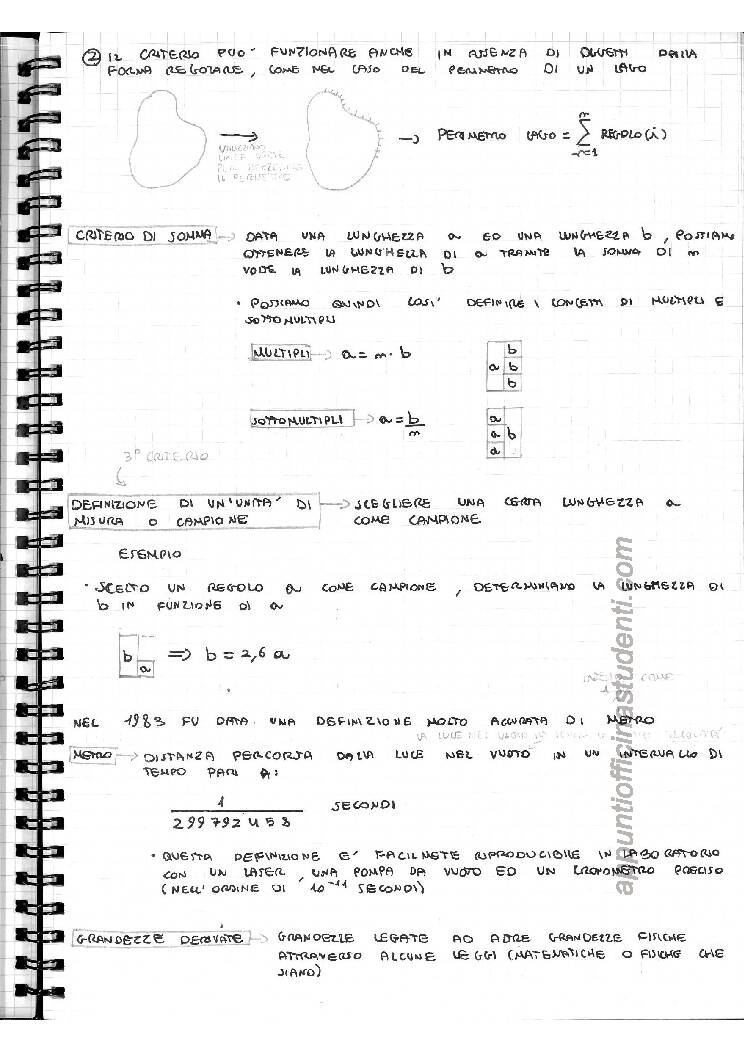 ② IL CRITERIO PUO' FUNZIONARE ANCHE IN ASSENZA DI OGGETTI DALLA
FORMA REGOLARE, COME NEL CASO DEL PERIMETRO DI UN LAGO
→ PERIMETRO LAGO = Σ REGOLO(i)
IL PERIMETRO
CRITERIO DI SOMMA → DATA UNA LUNGHEZZA a ED UNA LUNGHEZZA b, POSSIAMO
OTTENERE LA LUNGHEZZA DI a TRAMITE LA SOMMA DI n
VOLTE LA LUNGHEZZA DI b
• POSSIAMO QUINDI COSI' DEFINIRE I CONCETTI DI MULTIPLI E
SOTTOMULTIPLI
MULTIPLI → a = n · b
a b b b
SOTTOMULTIPLI → a = b/n
a a a b
3º CRITERIO
DEFINIZIONE DI UN'UNITA' DI → SCEGLIERE UNA CERTA LUNGHEZZA a
MISURA O CAMPIONE COME CAMPIONE
ESEMPIO
• SCELTO UN REGOLO a COME CAMPIONE, DETERMINIAMO LA LUNGHEZZA DI
b IN FUNZIONE DI a
b a ⇒ b = 2,6 a
COME
NEL 1983 FU DATA UNA DEFINIZIONE MOLTO ACCURATA DI METRO
LA LUCE NEL VUOTO
METRO → DISTANZA PERCORSA DALLA LUCE NEL VUOTO IN UN INTERVALLO DI
TEMPO PARI A:
1/299792458 SECONDI
• QUESTA DEFINIZIONE E' FACILNETE RIPRODUCIBILE IN LABORATORIO
CON UN LASER, UNA POMPA DA VUOTO ED UN CRONOMETRO PRECISO
(NELL'ORDINE DI 10⁻¹¹ SECONDI)
GRANDEZZE DERIVATE → GRANDEZZE LEGATE AD ALTRE GRANDEZZE FISICHE
ATTRAVERSO ALCUNE LEGGI (MATEMATICHE O FISICHE CHE
SIANO)
appuntiofficinastudenti.com